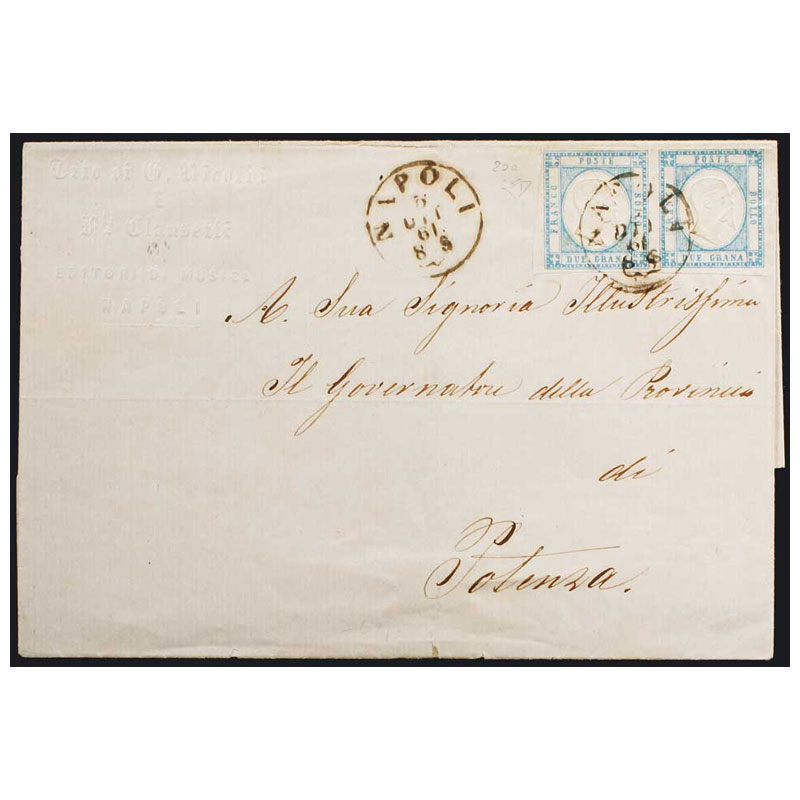 Tito di G. Ricordi
E
Fr. Clausetti
EDITORI DI MUSICA
NAPOLI
NAPOLI
61
8 S
20a
FRANCO
POSTE
BOLLO
DUE GRANA
POSTE
BOLLO
DUE GRANA
NAPOLI
61
8 S
A. Sua Signoria Illustrissima
Il Governatore della Provincia
di
Potenza.